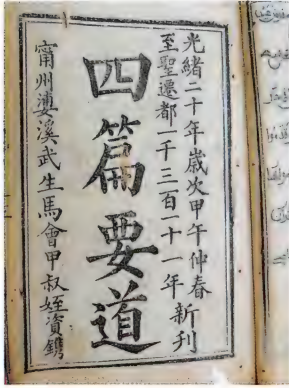 光緒二十年歲次甲午仲春
至聖遷都一千三百一十一年 新刊
四篇要道
甯州婆溪武生馬會甲叔姪資鐫